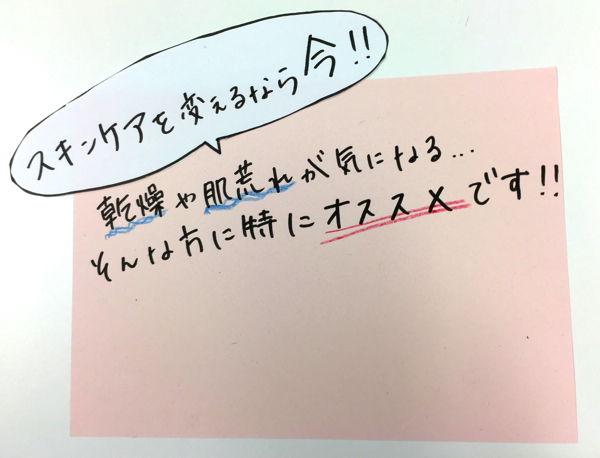 スキンケアを変えるなら今!!
乾燥や肌荒れが気になる...
そんな方に特にオススメです!!